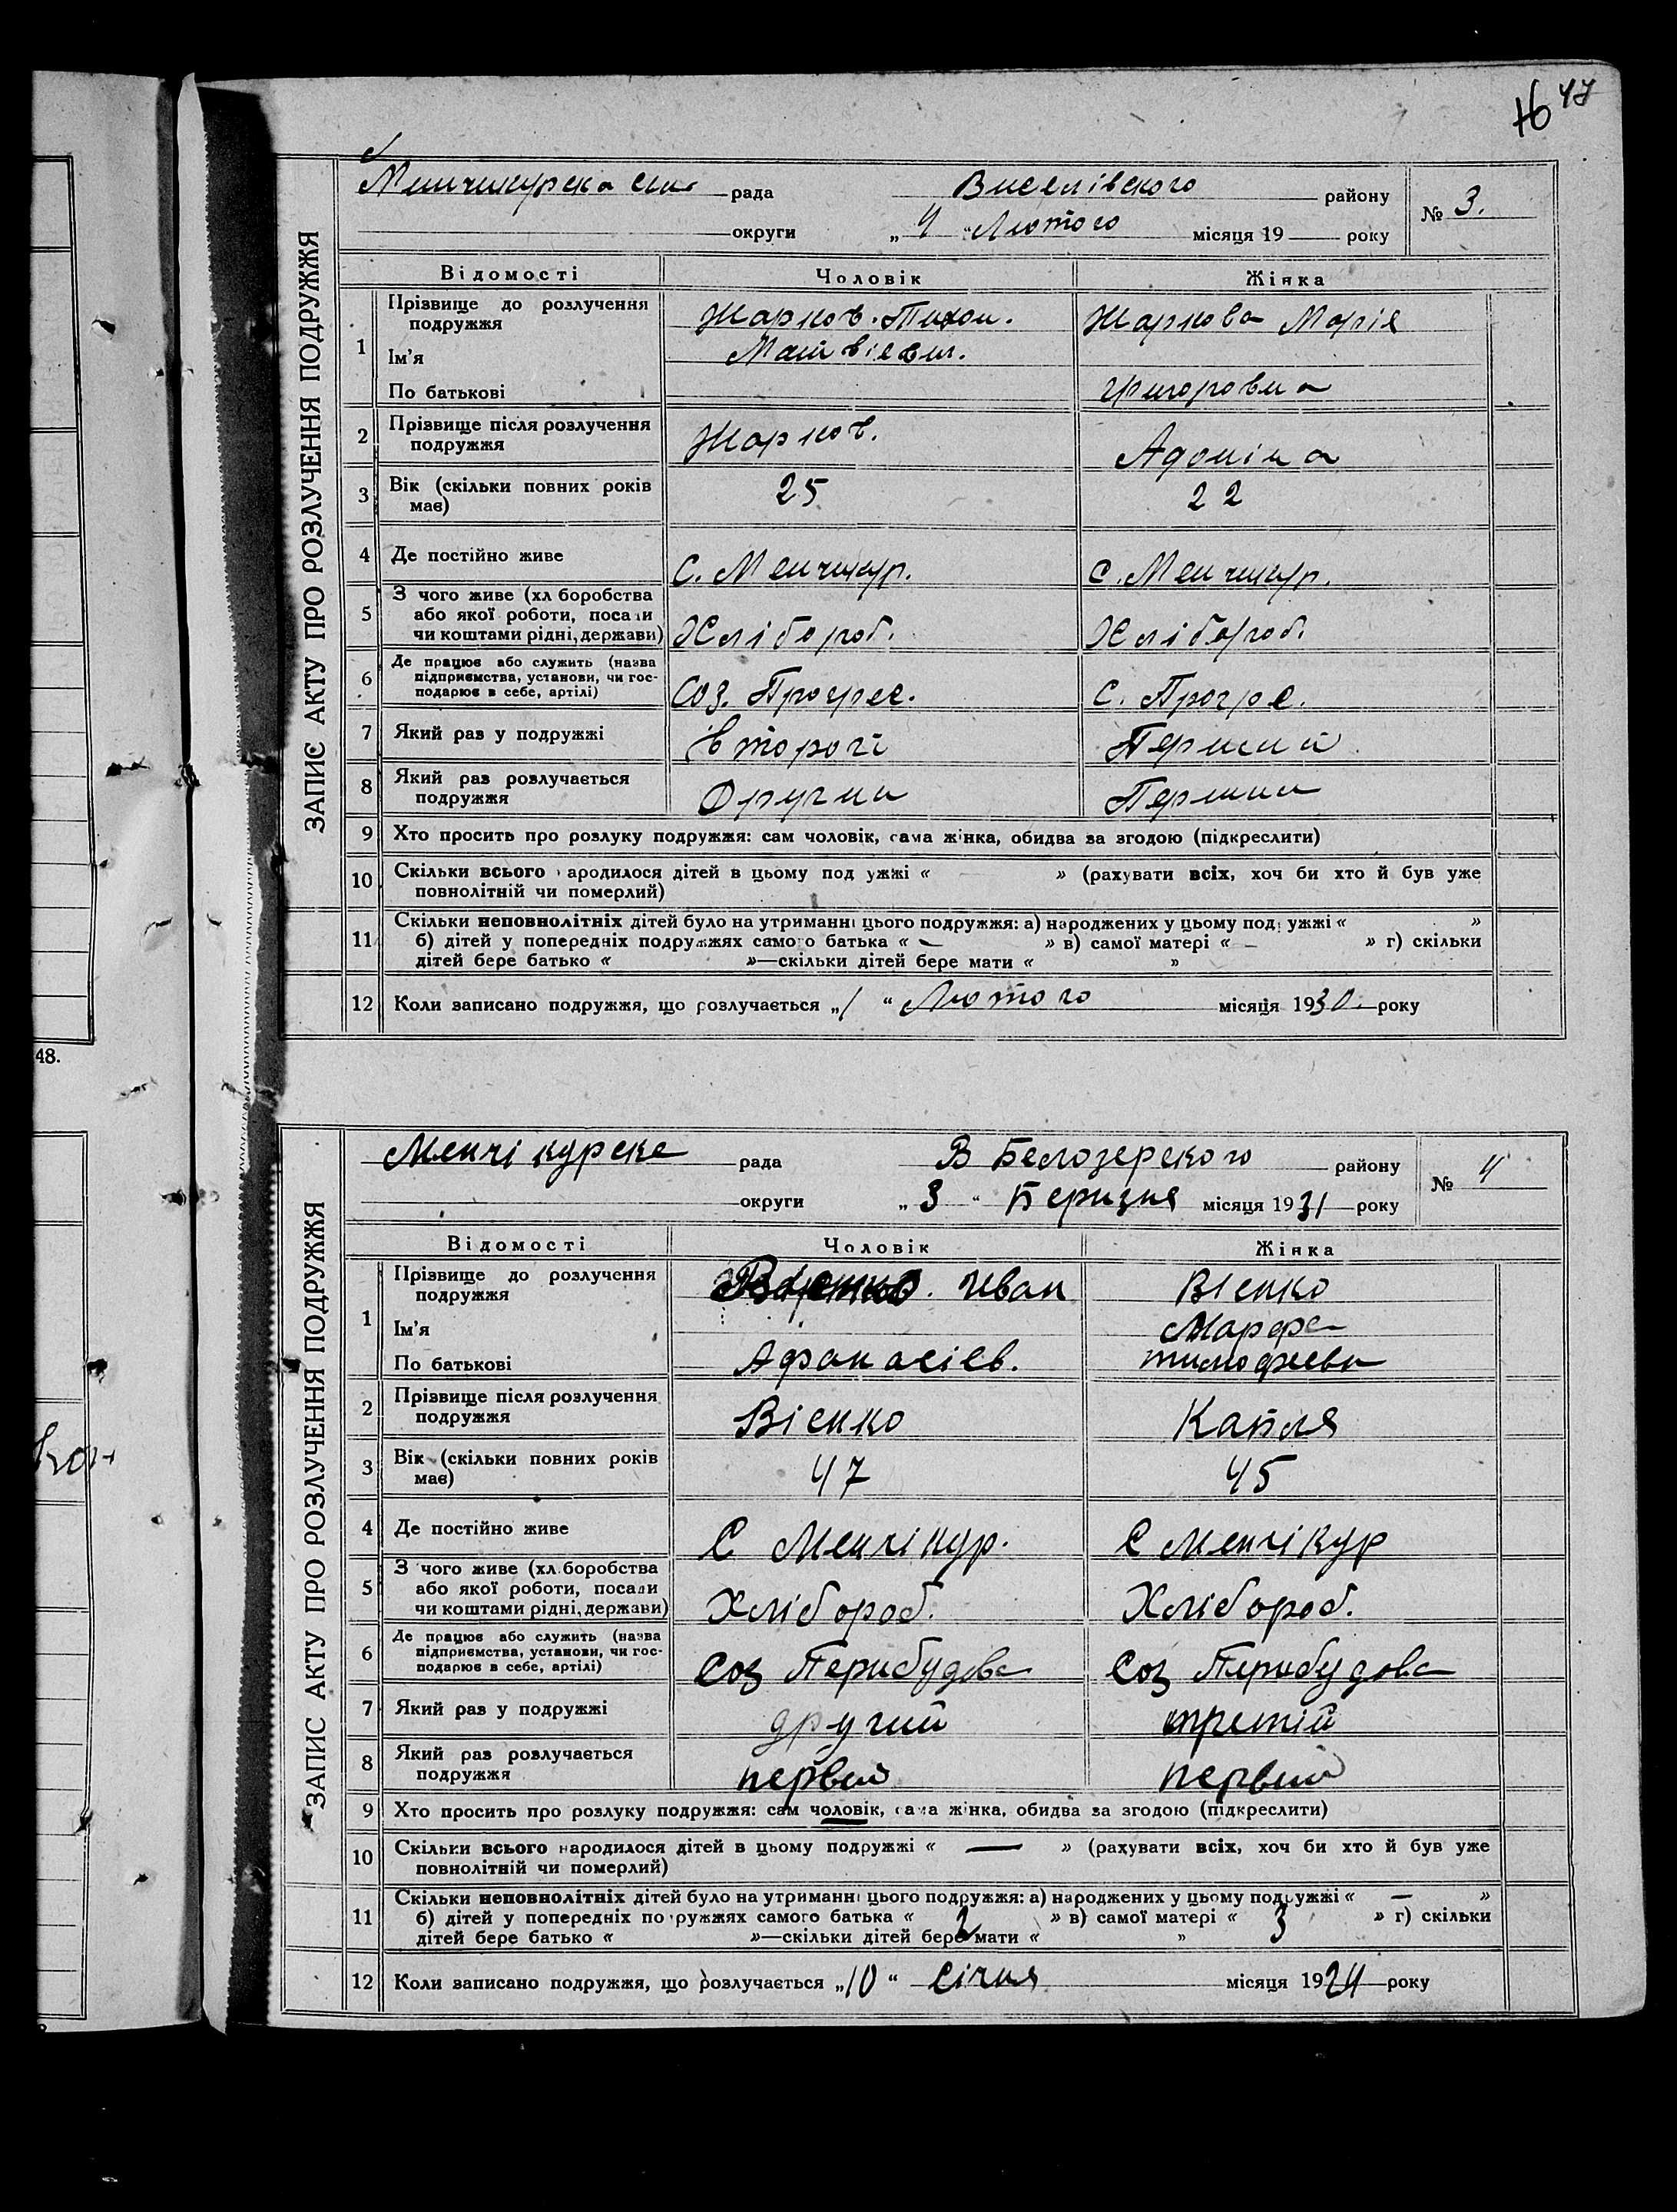 47
ЗАПИС АКТУ ПРО РОЗЛУЧЕННЯ ПОДРУЖЖЯ
рада Виселівского району № 3.
округи „ 4 “ Лютого місяця 19 року
Відомості Чоловік Жінка
1 Прізвище до розлучення подружжя Жарков. Тихон. Жаркова Марія
Ім'я Матвієвич.
По батькові Григоровна
2 Прізвище після розлучення подружжя Жарков. Адоніна
3 Вік (скільки повних років має) 25 22
4 Де постійно живе с. Менчикур. с. Менчикур.
5 З чого живе (хл боробства або якої роботи, посади чи коштами рідні, держави) Хлібороб. Хлібороб.
6 Де працює або служить (назва підприємства, установи, чи господарює в себе, артілі) Соз. Прогрес. С. Прогре.
7 Який раз у подружжі второй Перший
8 Який раз розлучається подружжя Другии Першии
9 Хто просить про розлуку подружжя: сам чоловік, сама жінка, обидва за згодою (підкреслити)
10 Скільки всього народилося дітей в цьому подружжі « » (рахувати всіх, хоч би хто й був уже
повнолітній чи померлий)
11 Скільки неповнолітніх дітей було на утриманні цього подружжя: а) народжених у цьому подружжі « »
б) дітей у попередніх подружжях самого батька « — » в) самої матері « — » г) скільки
дітей бере батько « »—скільки дітей бере мати « »
12 Коли записано подружжя, що розлучається „ 1 “ Лютого місяця 1930. року
48.
ЗАПИС АКТУ ПРО РОЗЛУЧЕННЯ ПОДРУЖЖЯ
Менчікурске рада В Белозерского району № 4
округи „ 3 “ Беризня місяця 1931 року
Відомості Чоловік Жінка
1 Прізвище до розлучення подружжя Иван Вієнко
Ім'я Марфа
По батькові Афанасієв. тимофиевн
2 Прізвище після розлучення подружжя Вієнко Капля
3 Вік (скільки повних років має) 47 45
4 Де постійно живе С Менчікур. С Менчікур
5 З чого живе (хл.боробства або якої роботи, посади чи коштами рідні, держави) Хлібороб. Хлібороб.
6 Де працює або служить (назва підприємства, установи, чи господарює в себе, артілі) Соз Перибудова Соз Перибудова
7 Який раз у подружжі другий третій
8 Який раз розлучається подружжя первий первий
9 Хто просить про розлуку подружжя: сам чоловік, сама жінка, обидва за згодою (підкреслити)
10 Скільки всього народилося дітей в цьому подружжі « — » (рахувати всіх, хоч би хто й був уже
повнолітній чи померлий)
11 Скільки неповнолітніх дітей було на утриманні цього подружжя: а) народжених у цьому подружжі « — »
б) дітей у попередніх подружжях самого батька « 2 » в) самої матері « 3 » г) скільки
дітей бере батько « »—скільки дітей бере мати « »
12 Коли записано подружжя, що розлучається „ 10 “ Січня місяця 1924 року